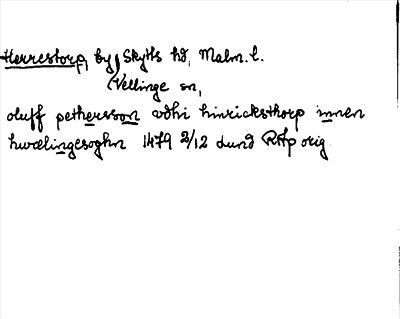 Herrestorp, by, Skytts hd, Malm. l.
(Vellinge sn,
oluff pethersson vdhi hinricksthorp innen
hwælingesoghn 1479 2/12 Lund RAp orig